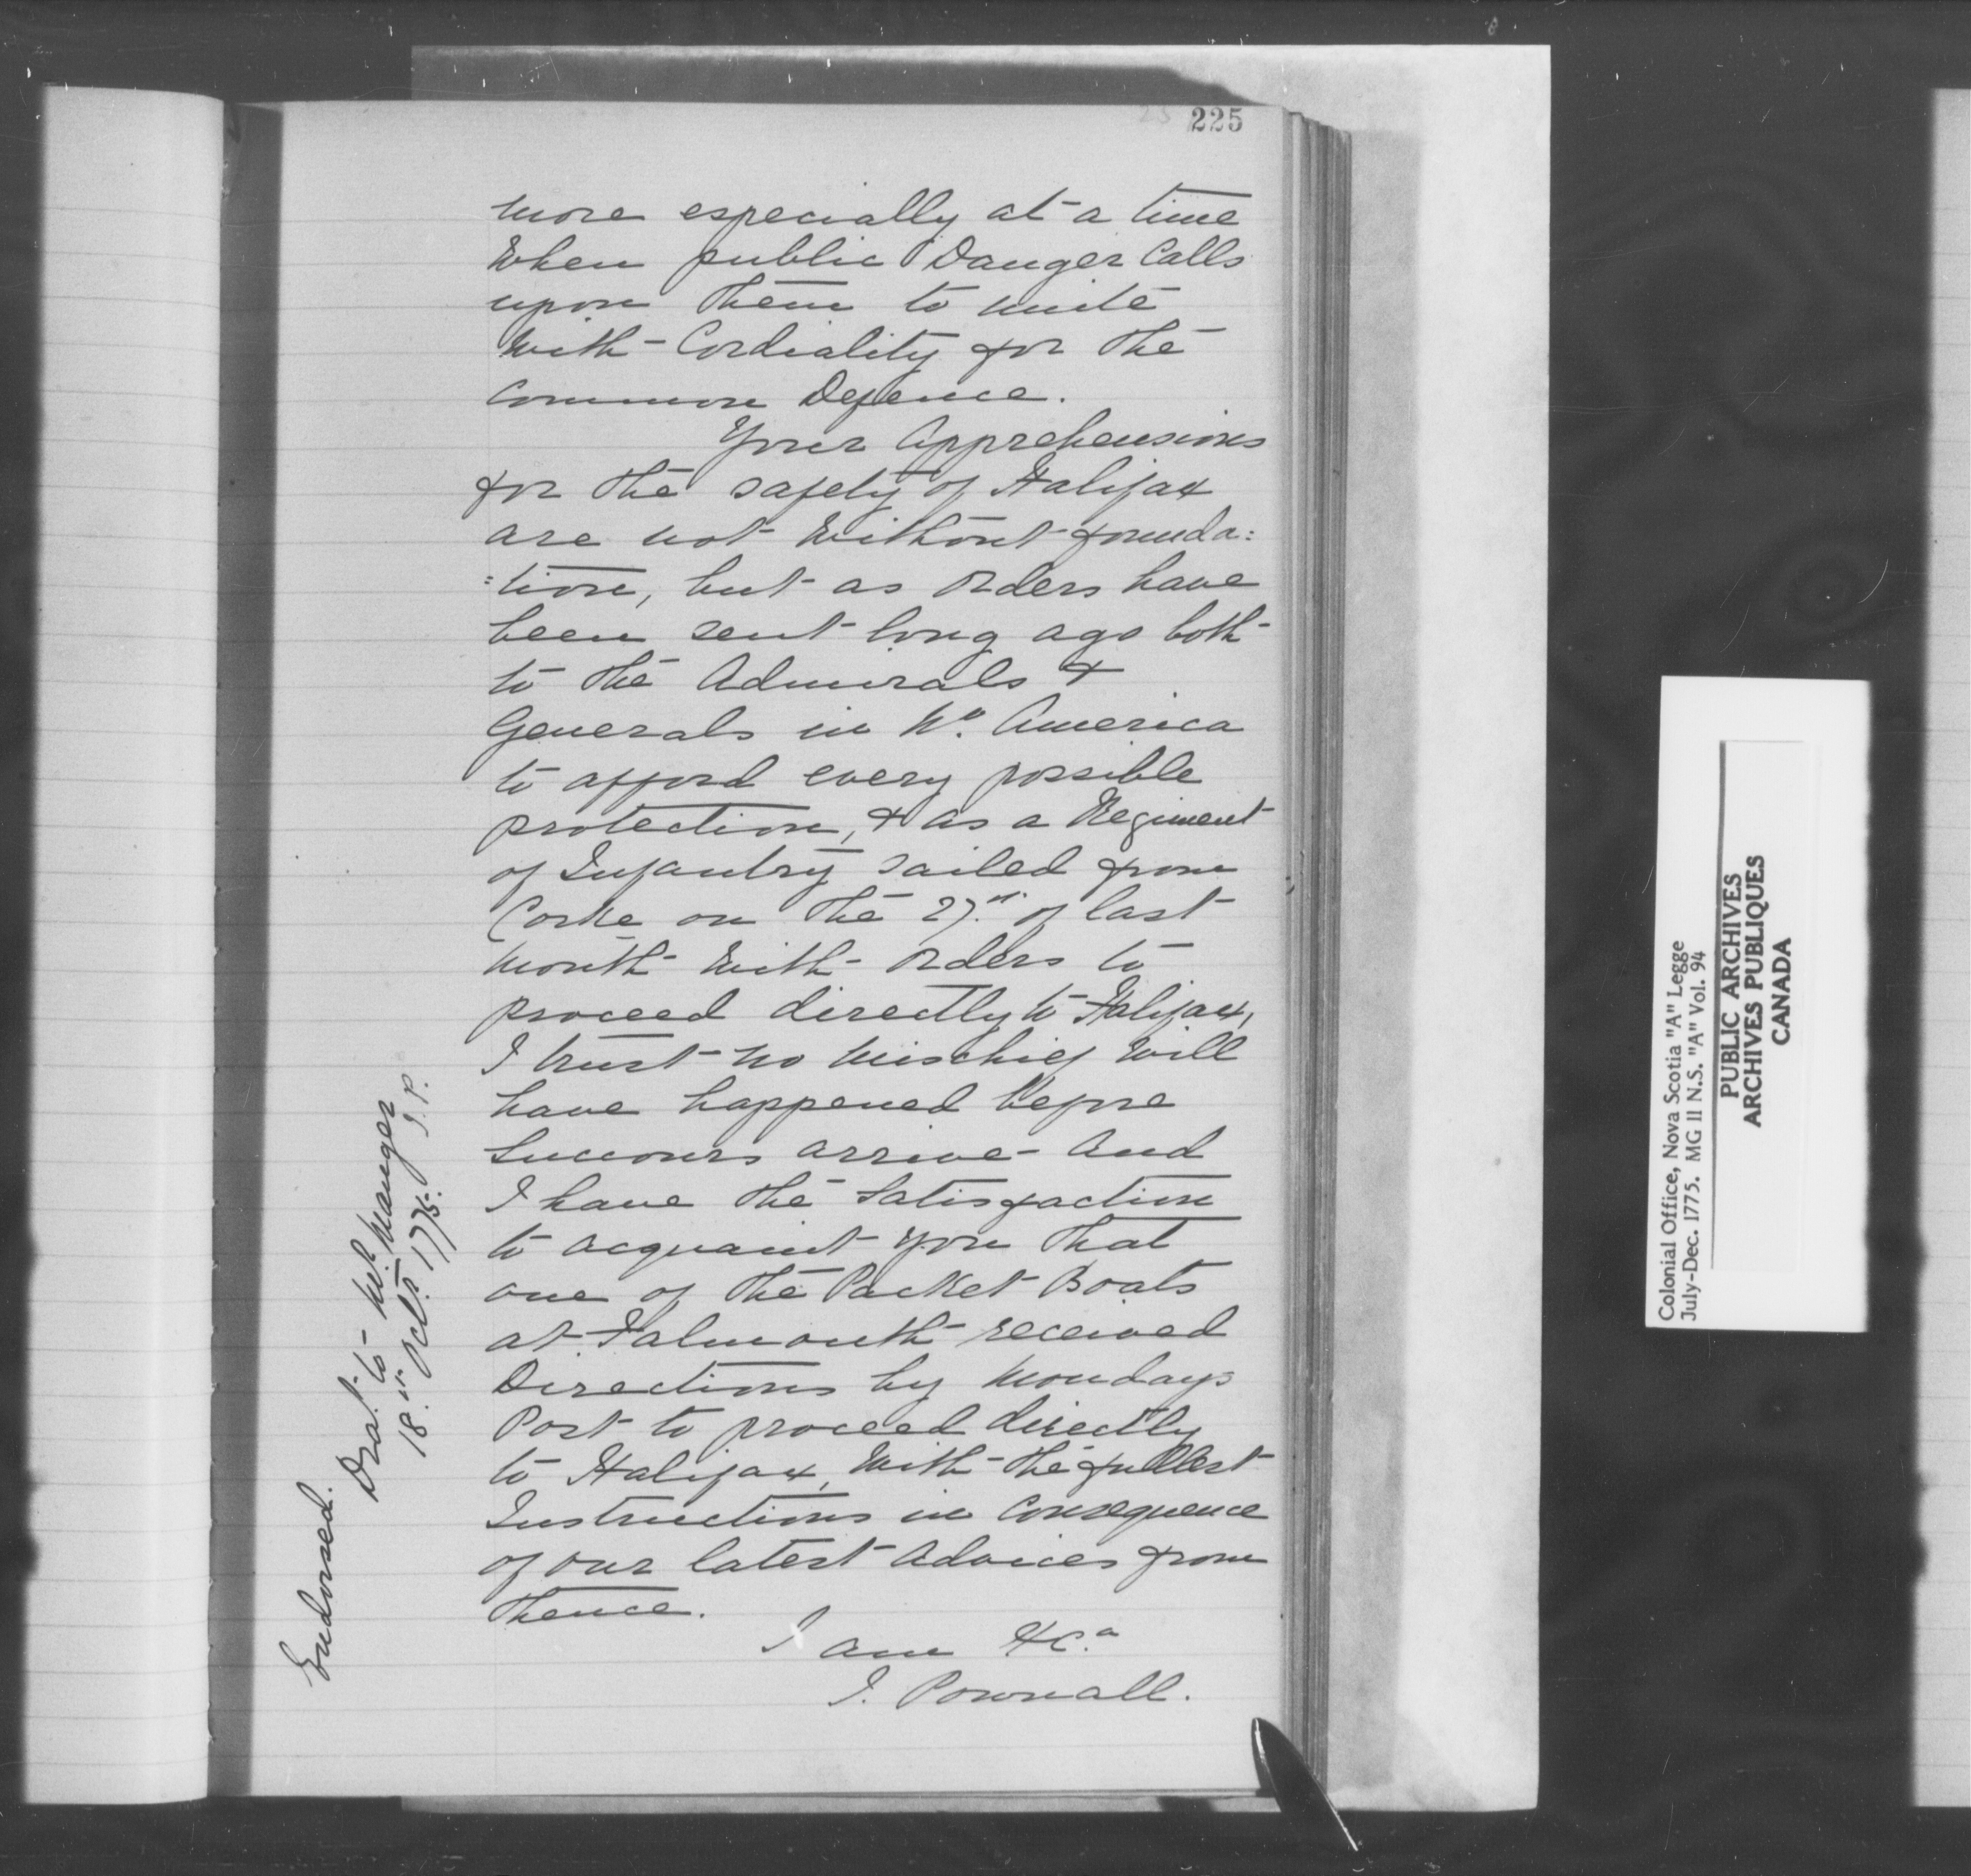 225
more especially at a time
when public Danger Calls
upon them to unite
with Cordiality for the
Common Defence.
Your Apprehensions
for the safety of Halifax
are not without founda:
:tion, but as Orders have
been sent long ago both
to the Admirals &
Generals in No. America
to afford every possible
protection, & as a Regiment
of Infantry sailed from
Corke on the 27th. of last
month with Orders to
proceed directly to Halifax,
I trust no Mischief will
have happened before
Succours arrive - And
I have the Satisfaction
to acquaint you that
one of the Packet Boats
at Falmouth received
Directions by Mondays
Post to proceed directly
to Halifax, with the fullest
Instructions in Consequence
of our latest Advices from
thence.
I am &c.a
J. Pownall.
Endorsed.
Drat. to Mr. Mauger
18th Octr. 1775. J.P.
Colonial Office, Nova Scotia "A" Legge
July-Dec. 1775. MG 11 N.S. "A" Vol. 94
PUBLIC ARCHIVES
ARCHIVES PUBLIQUES
CANADA